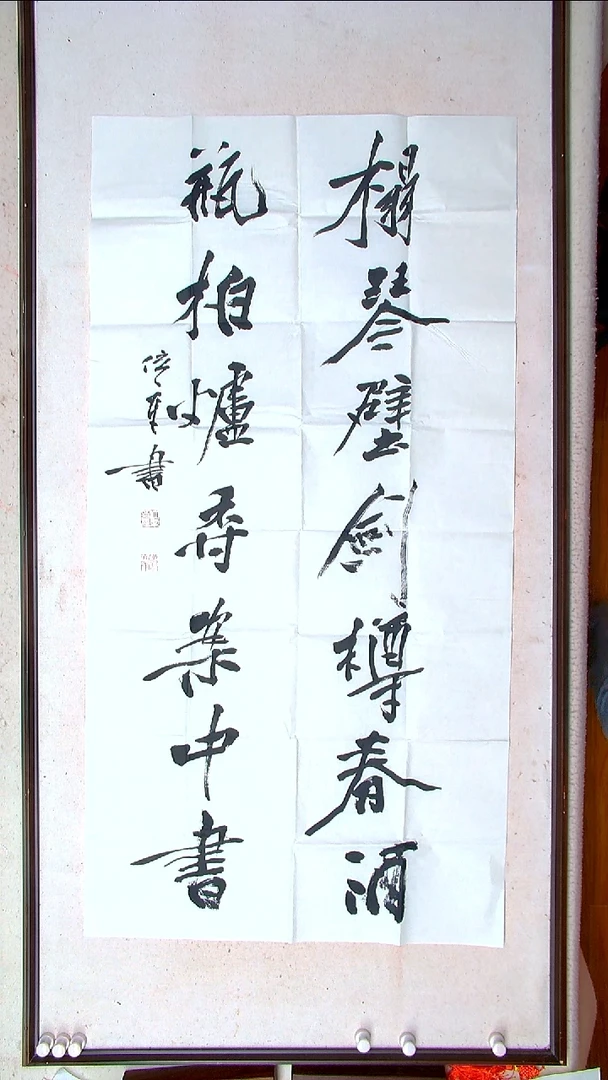 榻琴壁劍樽春酒
瓶柏爐香案中書
書